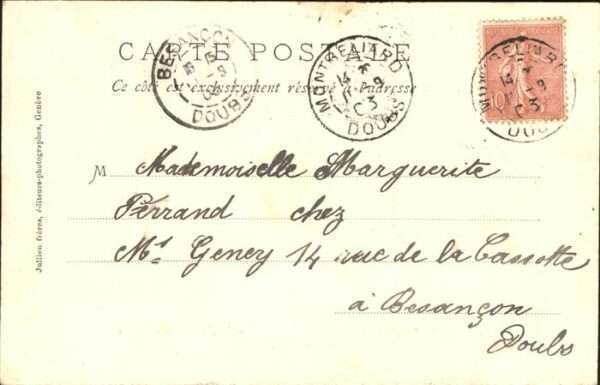 CARTE POSTALE
Ce côté est exclusivement réservé à l'adresse
BESANÇON
15
-9
03
DOUBS
MONTBÉLIARD
14
-9
03
DOUBS
MONTBÉLIARD
14
-9
03
DOUBS
10
M
Mademoiselle Marguerite
Perrand chez
Mr Geney 14 rue de la Cassotte
à Besançon
Doubs
Jullien frères, éditeurs-photographes, Genève